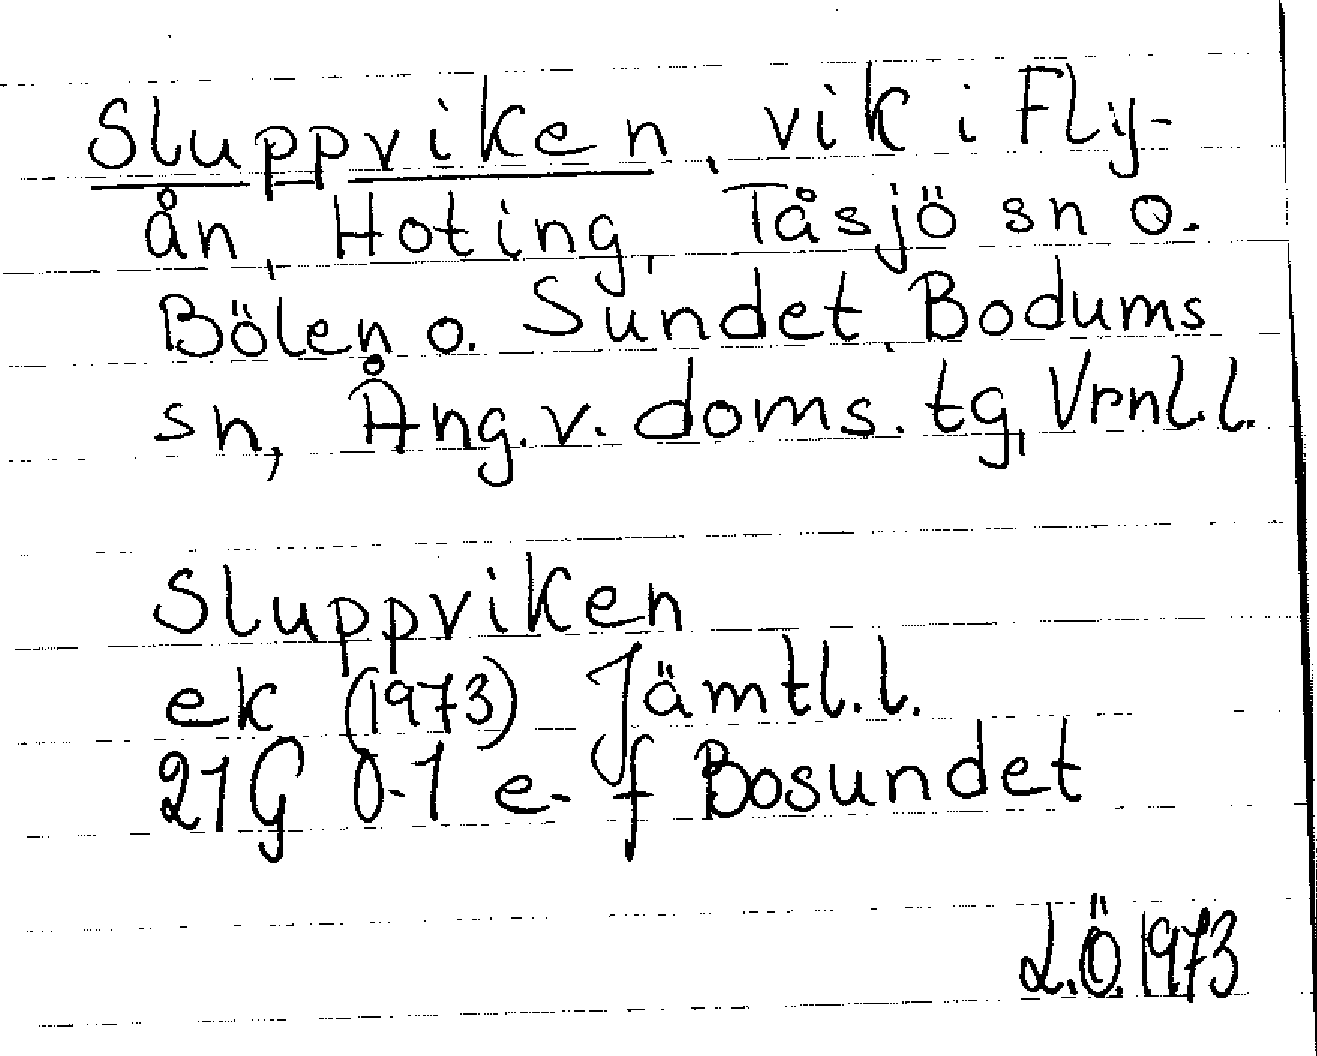 Sluppviken, vik i Fly-
ån, Hoting, Tåsjö sn o.
Bölen o. Sundet, Bodums
sn, Ång.v. doms. tg, Vrnl.l.
Sluppviken
ek (1973) Jämtl.l.
21G 0-1 e-f Bosundet
L.Ö. 1973